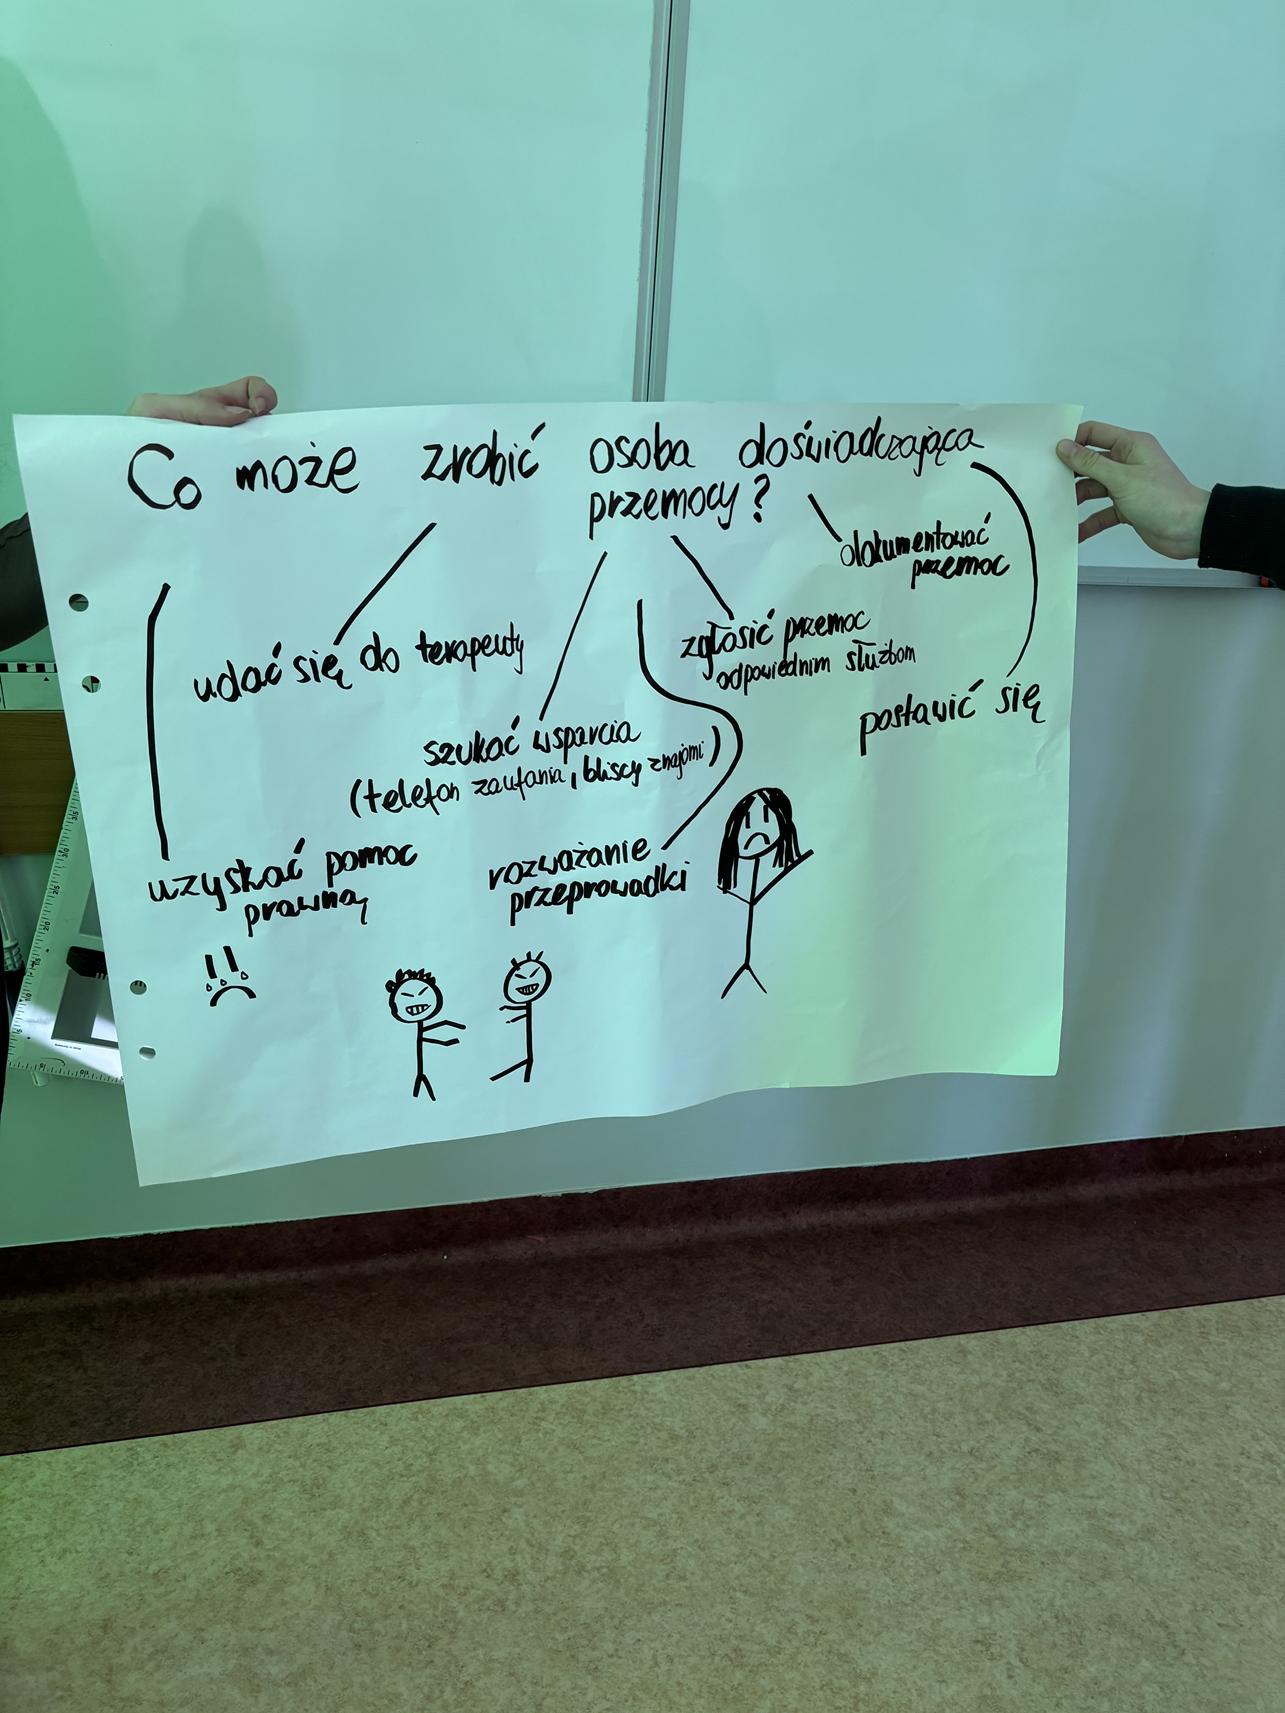 Co może zrobić osoba doświadczająca
przemocy?
dokumentować
przemoc
zgłosić przemoc
odpowiednim służbom
udać się do terapeuty
postawić się
szukać wsparcia
(telefon zaufania, bliscy znajomi)
uzyskać pomoc
prawną
rozważanie
przeprowadki